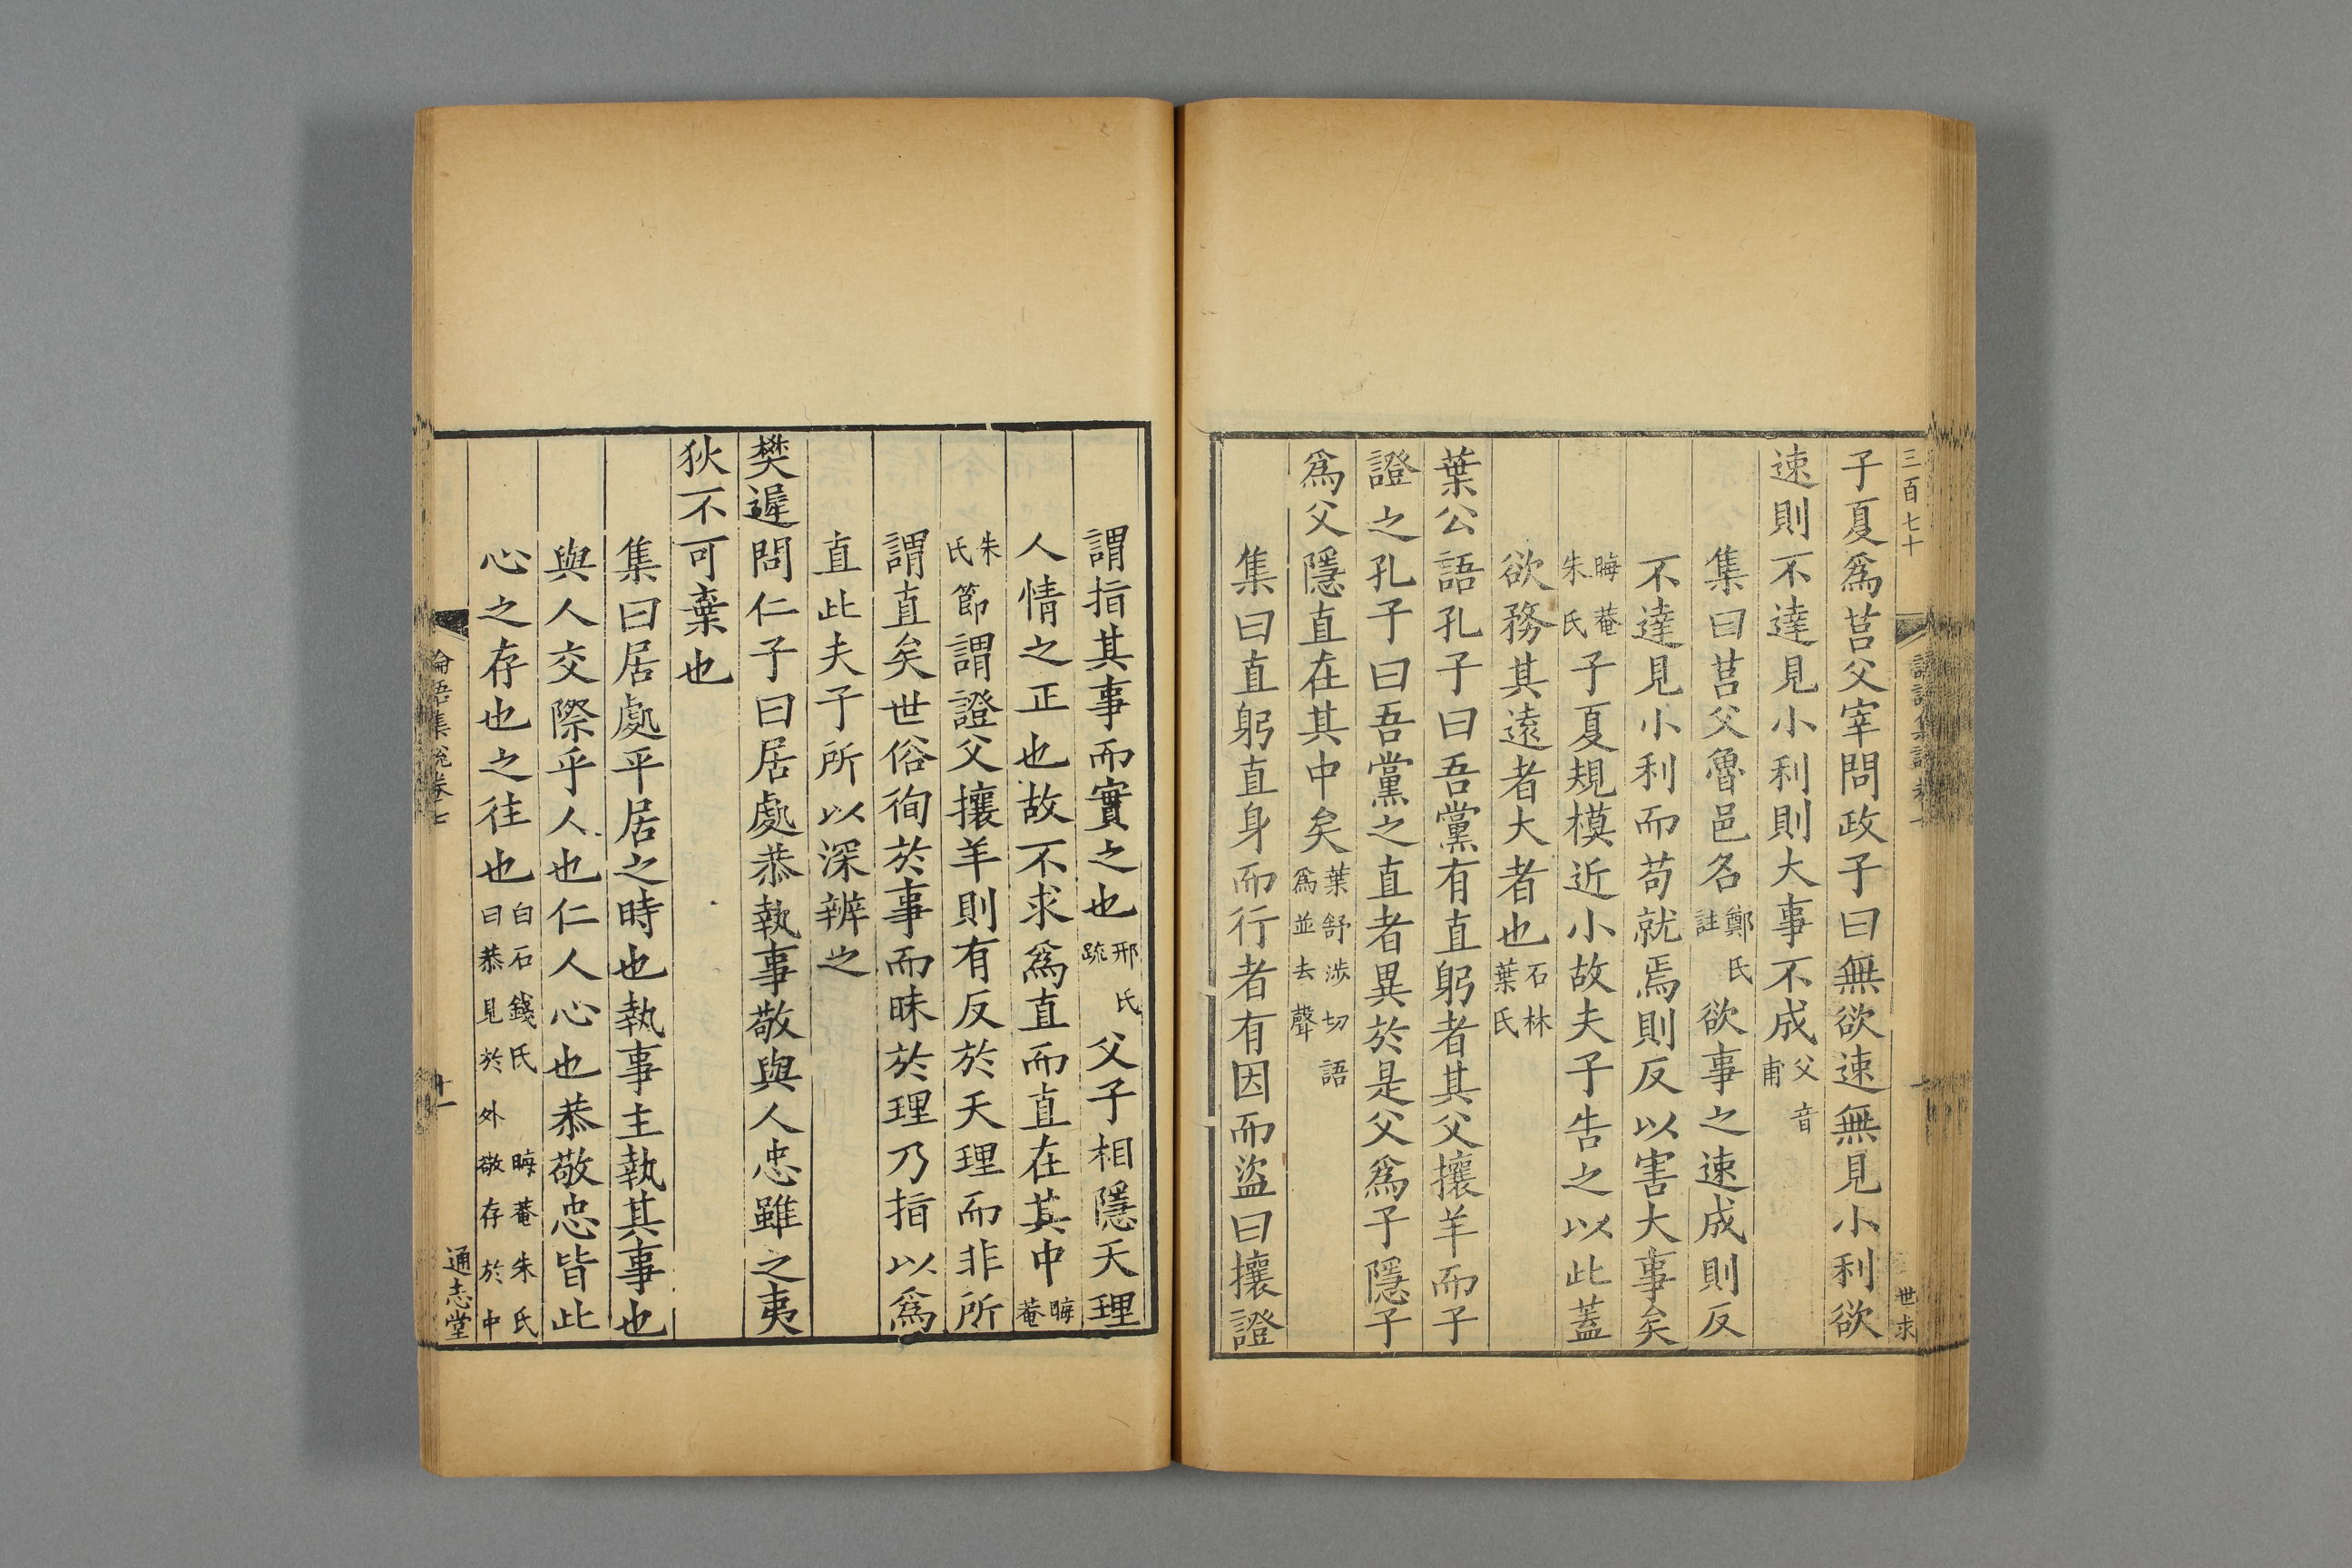 三百七十
世求
子夏爲莒父宰問政子曰無欲速無見小利欲
速則不達見小利則大事不成父音甫
集曰莒父魯邑名鄭氏註欲事之速成則反
不達見小利而苟就焉則反以害大事矣
晦菴朱氏子夏規模近小故夫子告之以此蓋
欲務其遠者大者也石林葉氏
葉公語孔子曰吾黨有直躬者其父攘羊而子
證之孔子曰吾黨之直者異於是父爲子隱子
爲父隱直在其中矣葉舒涉切語爲並去聲
集曰直躬直身而行者有因而盜曰攘證
謂指其事而實之也邢氏疏父子相隱天理
人情之正也故不求爲直而直在其中晦菴
朱氏節謂證父攘羊則有反於天理而非所
謂直矣世俗徇於事而昧於理乃指以爲
直此夫子所以深辨之
樊遲問仁子曰居處恭執事敬與人忠雖之夷
狄不可棄也
集曰居處平居之時也執事主執其事也
與人交際乎人也仁人心也恭敬忠皆此
心之存也之往也白石錢氏曰恭見於外敬存於中晦菴朱氏
論語集說卷七
十一
通志堂